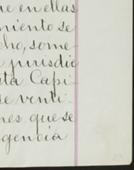 en ellas
miento se
cho, some
jurisdic
ta Capi
se venti
nes que se
gencia